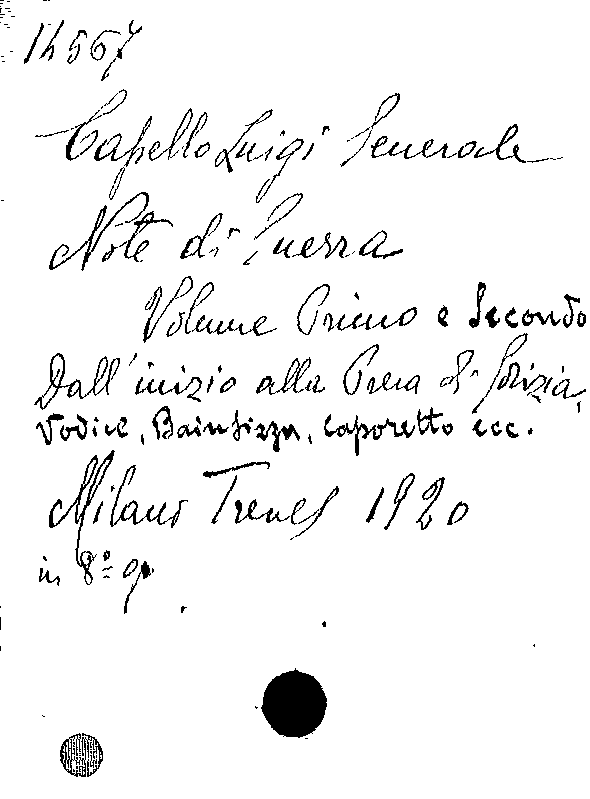 14567
Capello Luigi Generale
Note di Guerra
Volume Primo e Secondo
Dall'inizio alla Presa di Gorizia,
Vodice, Bainsizza, Caporetto ecc.
Milano Treves 1920
in 8º g.